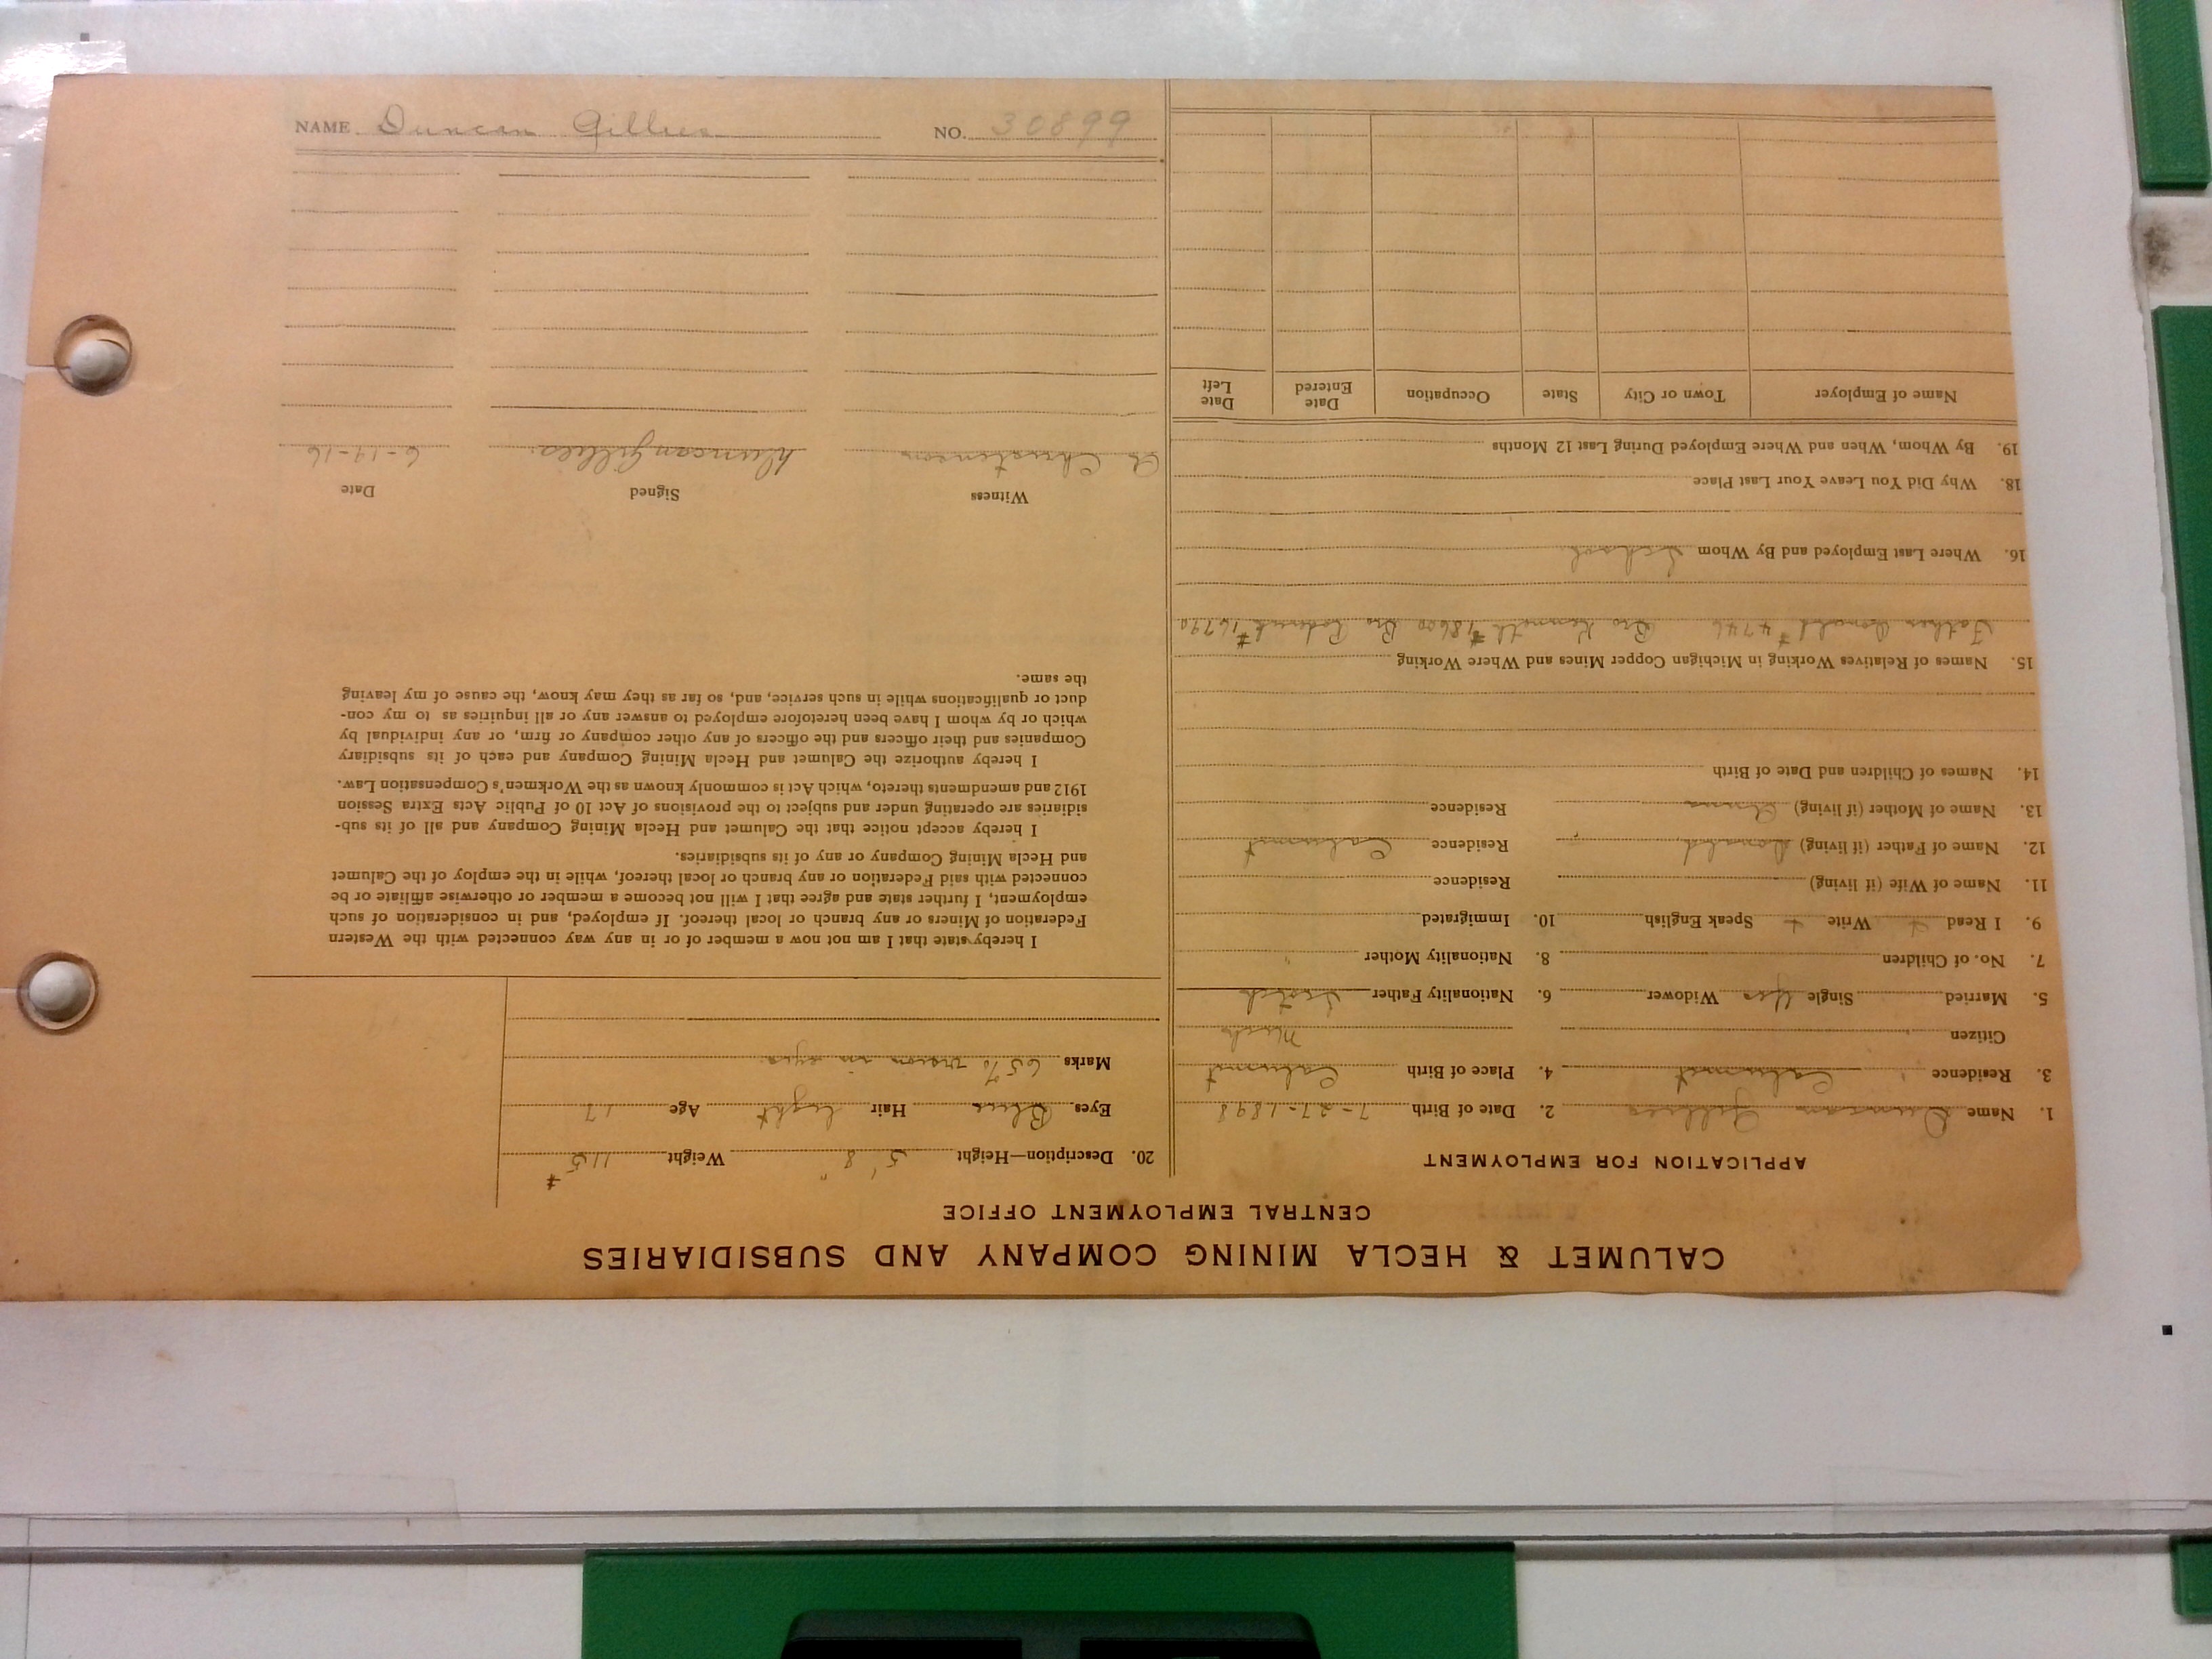 NAME Duncan Gillies NO. 30899
CALUMET & HECLA MINING COMPANY AND SUBSIDIARIES
CENTRAL EMPLOYMENT OFFICE
APPLICATION FOR EMPLOYMENT
1. Name Duncan Gillies 2. Date of Birth 7-27-1898
3. Residence Calumet 4. Place of Birth Calumet
Citizen Mich
5. Married Single Yes Widower 6. Nationality Father Scotch
7. No. of Children 8. Nationality Mother "
9. I Read Write Speak English 10. Immigrated
11. Name of Wife (if living) Residence
12. Name of Father (if living) Donald Residence Calumet
13. Name of Mother (if living) Residence
14. Names of Children and Date of Birth
15. Names of Relatives Working in Michigan Copper Mines and Where Working
Father Donald #4746 Bro Kenneth #18600 Bro Roderick #16790
16. Where Last Employed and By Whom School
18. Why Did You Leave Your Last Place
19. By Whom, When and Where Employed During Last 12 Months
Name of Employer Town or City State Occupation Date Entered Date Left
20. Description—Height 5' 8" Weight 115 #
Eyes Blue Hair Light Age 17
Marks 65% vision in eyes
I hereby state that I am not now a member of or in any way connected with the Western
Federation of Miners or any branch or local thereof. If employed, and in consideration of such
employment, I further state and agree that I will not become a member or otherwise affiliate or be
connected with said Federation or any branch or local thereof, while in the employ of the Calumet
and Hecla Mining Company or any of its subsidiaries.
I hereby accept notice that the Calumet and Hecla Mining Company and all of its sub-
sidiaries are operating under and subject to the provisions of Act 10 of Public Acts Extra Session
1912 and amendments thereto, which Act is commonly known as the Workmen's Compensation Law.
I hereby authorize the Calumet and Hecla Mining Company and each of its subsidiary
Companies and their officers and the officers of any other company or firm, or any individual by
which or by whom I have been heretofore employed to answer any or all inquiries as to my con-
duct or qualifications while in such service, and, so far as they may know, the cause of my leaving
the same.
Witness Signed Date
Christenson Duncan Gillies. 6-19-16